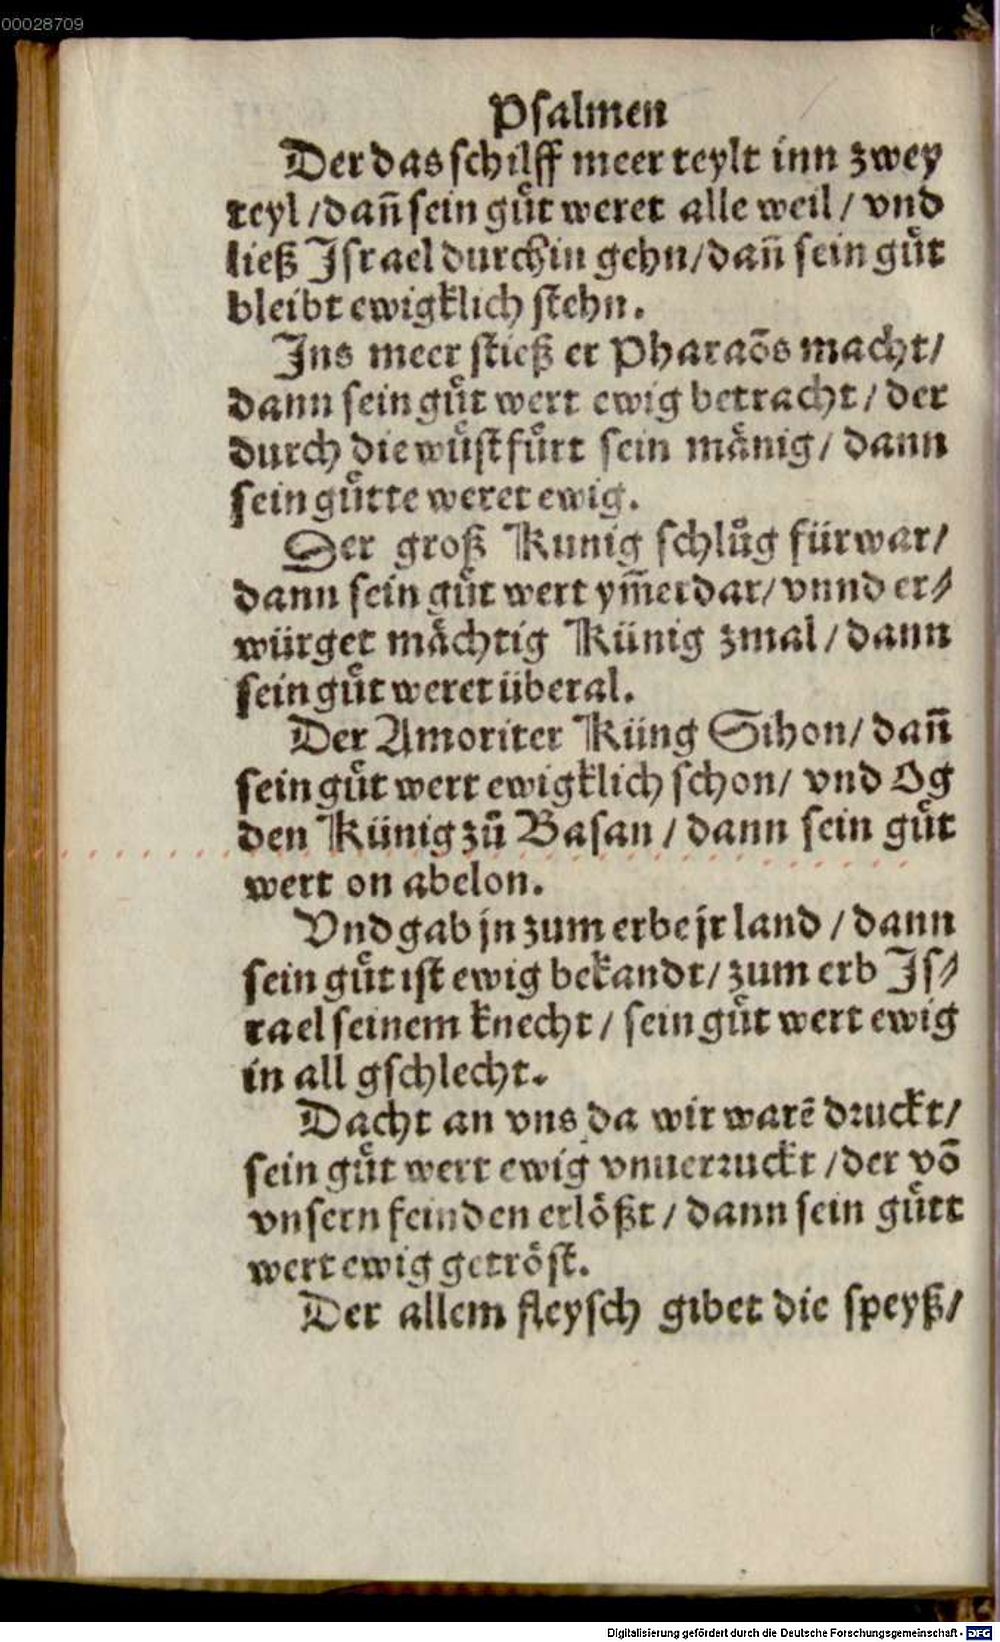 00028709
Psalmen
Der das schilff meer teylt inn zwey
teyl / dañ sein guͤt weret alle weil / vnd
ließ Israel durchin gehn / dañ sein guͤt
bleibt ewigklich stehn.
Ins meer stieß er Pharaõs macht /
dann sein guͤt wert ewig betracht / der
durch die wuͤst fuͤrt sein maͤnig / dann
sein guͤtte weret ewig.
Der groß Kunig schluͦg fürwar /
dann sein guͤt wert ym̃erdar / vnnd er⸗
würget maͤchtig Künig zmal / dann
sein guͤt weret überal.
Der Amoriter Küng Sihon / dañ
sein guͤt wert ewigklich schon / vnd Og
den Künig zuͦ Basan / dann sein guͤt
wert on abelon.
Vnd gab jn zum erbe jr land / dann
sein guͤt ist ewig bekandt / zum erb Is⸗
rael seinem knecht / sein guͤt wert ewig
in all gschlecht.
Dacht an vns da wir warẽ druckt /
sein guͤt wert ewig vnuerruckt / der võ
vnsern feinden erloͤßt / dann sein guͤtt
wert ewig getroͤst.
Der allem fleysch gibet die speyß /
Digitalisierung gefördert durch die Deutsche Forschungsgemeinschaft - DFG